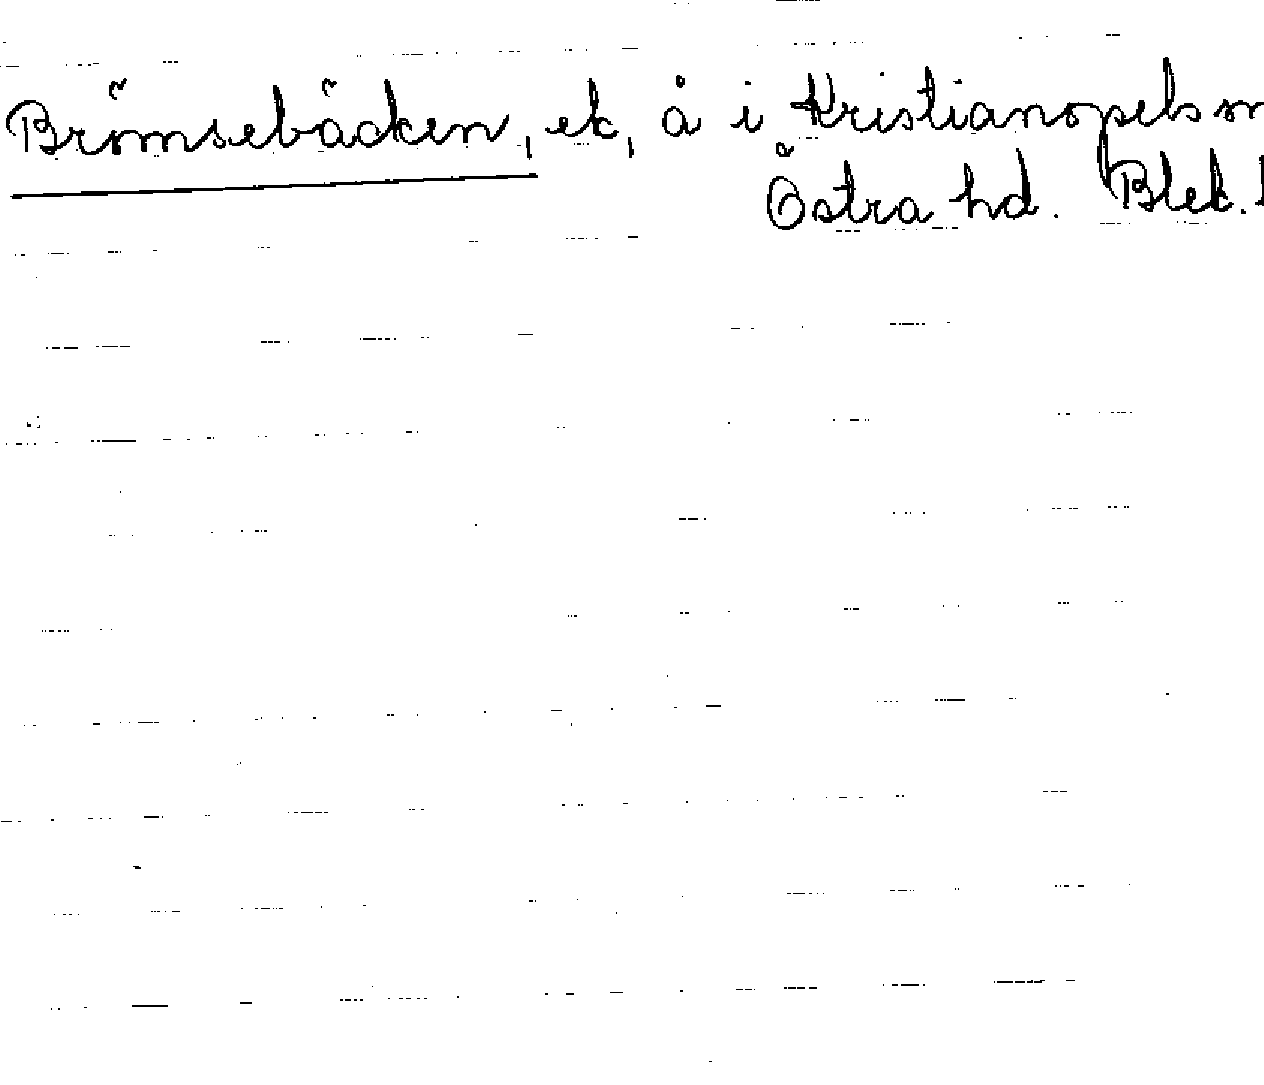 Brömsebäcken, ek, å i Kristianopels sn
Östra hd. Blek. l